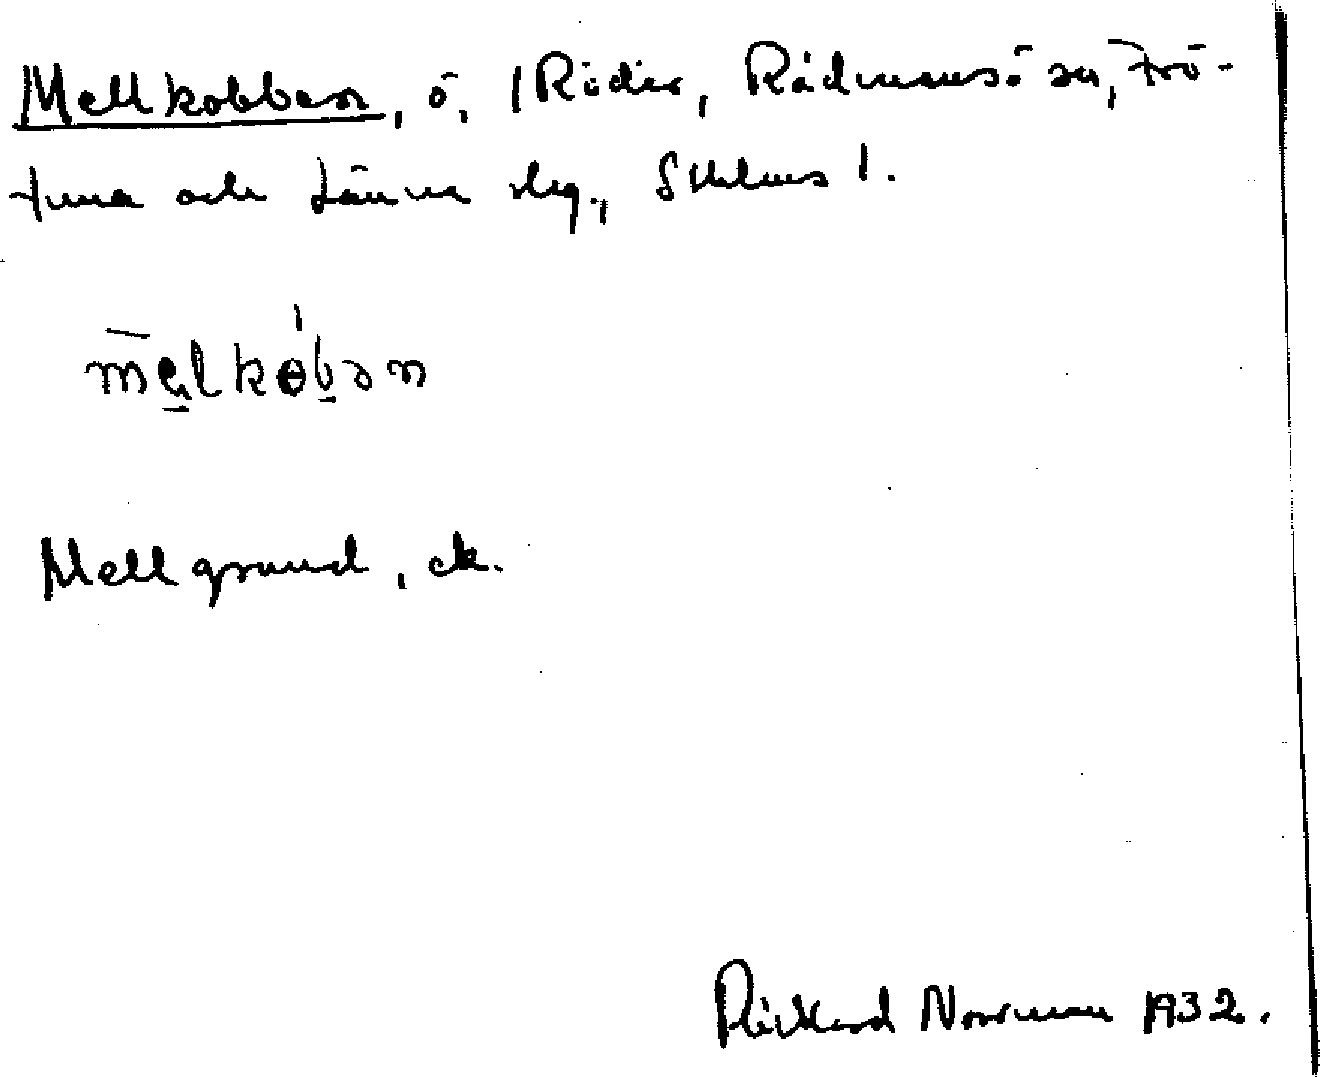 Mellkobben, ö, Röder, Rådmansö sn, Frö-
tuna och Länna slg., Sthlms l.
mēlkóbən
Mellgrund, ek.
Rickard Norrman 1932.